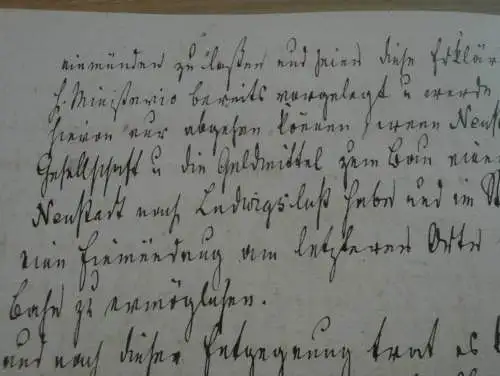 einmünden zu laßen und seien diese Erklär
h. Ministerio bereits vorgelegt u werde
hievon nur abgehen können, wenn Neus
Gesellschaft u die Geldmittel zum Bau einer
Neustadt nach Ludwigslust habe und im St
eine Einmündung am letzteren Orte
Bahn zu ermöglichen.
und nach dieser Entgegnung trat es